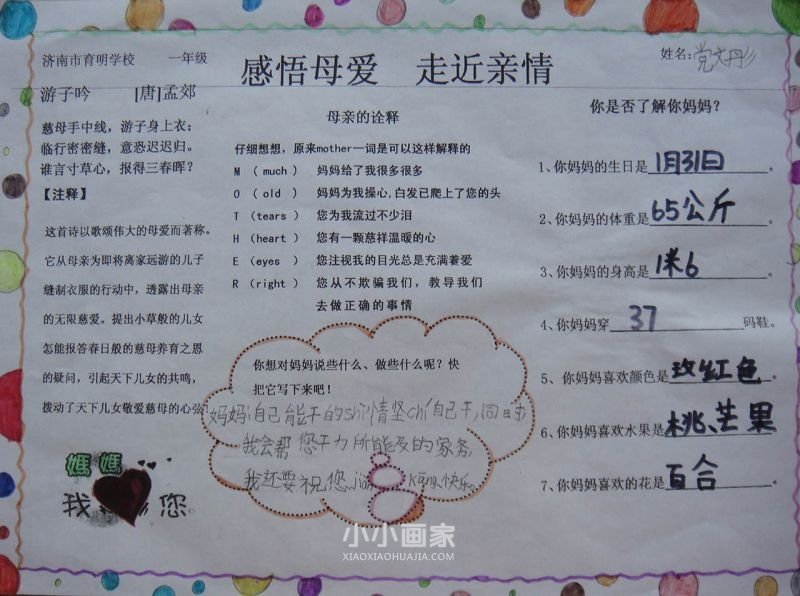 济南市育明学校 一年级
感悟母爱 走近亲情
姓名: 党文彤
游子吟 [唐]孟郊
慈母手中线，游子身上衣；
临行密密缝，意恐迟迟归。
谁言寸草心，报得三春晖？
【注释】
这首诗以歌颂伟大的母爱而著称。
它从母亲为即将离家远游的儿子
缝制衣服的行动中，透露出母亲
的无限慈爱。提出小草般的儿女
怎能报答春日般的慈母养育之恩
的疑问，引起天下儿女的共鸣，
拨动了天下儿女敬爱慈母的心弦!
媽媽
我 您
母亲的诠释
仔细想想，原来mother一词是可以这样解释的
M （ much ） 妈妈给了我很多很多
O （ old ） 妈妈为我操心,白发已爬上了您的头
T （tears ） 您为我流过不少泪
H （heart ） 您有一颗慈祥温暖的心
E （eyes ） 您注视我的目光总是充满着爱
R （right ） 您从不欺骗我们，教导我们
去做正确的事情
你想对妈妈说些什么、做些什么呢？快
把它写下来吧！
妈妈自己能干的shì情坚chí自己干,同时
我会帮您干力所能及的家务,
我还要祝您 kāng快乐。
你是否了解你妈妈？
1、你妈妈的生日是1月31日。
2、你妈妈的体重是65公斤。
3、你妈妈的身高是1米6。
4、你妈妈穿37码鞋。
5、你妈妈喜欢颜色是玫红色。
6、你妈妈喜欢水果是桃、芒果
7、你妈妈喜欢的花是百合。
小小画家
XIAOXIAOHUAJIA.COM